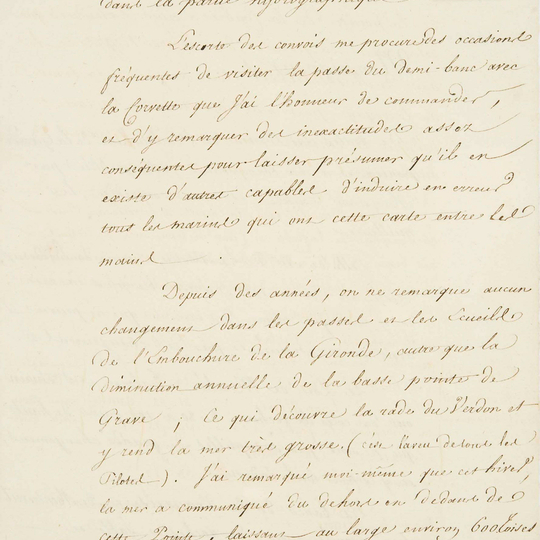 dans la partie hydrographique
L'escorte des convois me procure des occasions
fréquentes de visiter la passe du demi-banc avec
la Corvette que J'ai l'honneur de commander,
et d'y remarquer des inexactitudes assez
conséquentes pour laisser présumer qu'il en
existe d'autres capables d'induire en erreur
tous les marins qui ont cette carte entre les
mains.
Depuis des années, on ne remarque aucun
changement dans les passes et les Ecueils
de l'Embouchure de la Gironde, autre que la
diminution annuelle de la basse pointe de
Grave ; Ce qui découvre la rade du Verdon et
y rend la mer très grosse. (c'est l'aveu de tous les
Pilotes). J'ai remarqué moi-même que cet hiver,
la mer a communiqué du dehors en dedans de
cette Pointe, laissant au large environ 600 Toises